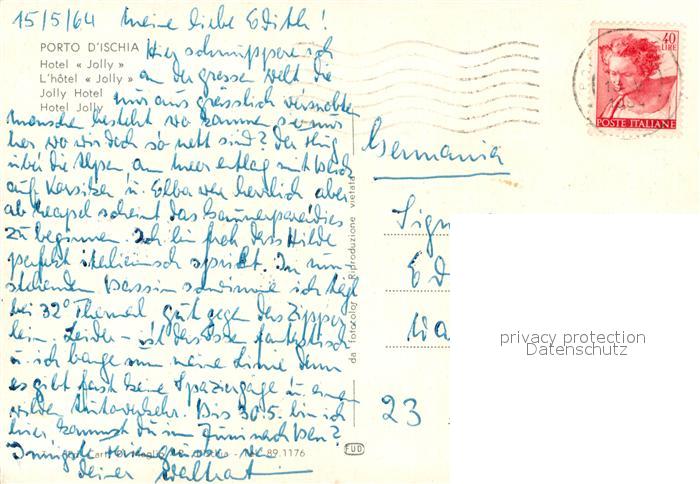 15/5/64 Meine liebe Edith!
PORTO D'ISCHIA
Hotel « Jolly »
L'hôtel « Jolly »
Jolly Hotel
Hotel Jolly
Hier schnuppere ich
an der grossen Welt die
nur aus grässlich versnobten
Menschen besteht wo kommen sie nur
her wo wir doch so nett sind? Der Flug
über die Alpen am Meer entlang mit Blick
auf Korsika u. Elba war herrlich aber
ab Neapel scheint das Gaunerparadies
zu beginnen. Ich bin froh dass Hilde
perfekt italienisch spricht. Im
stehenden Bassin schwimme ich tägl
bei 32° Thermal gut gegen das Zipper
lein. Leider ist das Essen fantastisch
u. ich bange um meine Linie denn
es gibt fast keine Spaziergänge u. einen
wilden Autoverkehr. Bis 30.5. bin ich
hier kommst du im Juni nach
Innigste
deiner
89.1176
FUD
da fotocolor Riproduzione vietata
40 LIRE
POSTE ITALIANE
Germania
Sign
Ed
23
privacy protection
Datenschutz